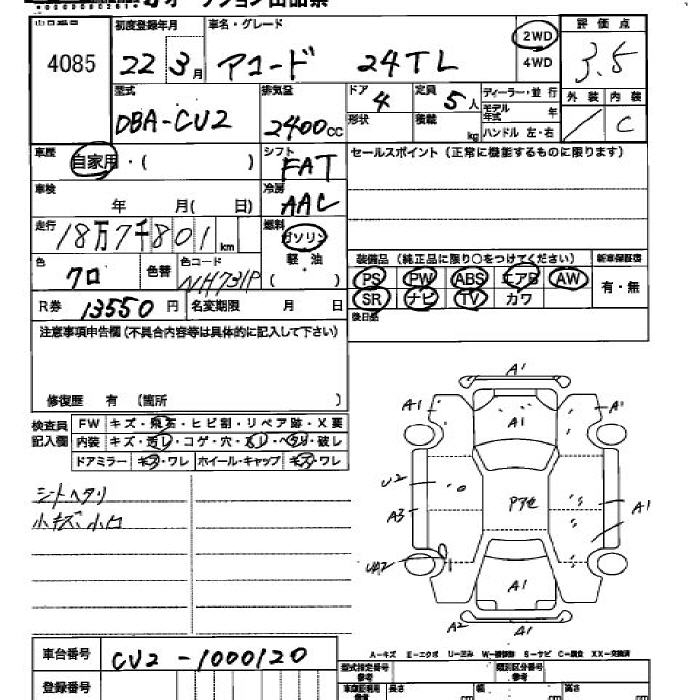 オークション出品票
出品番号 4085
初度登録年月 22 3月
車名・グレード アコード 24TL
2WD 4WD
評価点 3.5
型式 DBA-CU2
排気量 2400cc
ドア 4 形状
定員 5人 積載 kg
ディーラー・並行
モデル年式 年
ハンドル 左・右
外装 内装 C
車歴 自家用・( )
シフト FAT
セールスポイント(正常に機能するものに限ります)
車検 年 月( 日)
冷房 AAC
走行 18万7千801km
燃料 ガソリン 軽油 ( )
色 クロ 色替 色コード NH731P
装備品(純正品に限り○をつけてください) 新車保証書
PS PW ABS エアB AW 有・無
SR ナビ TV カワ
R券 13550円 名変期限 月 日
後日品
注意事項申告欄(不具合内容等は具体的に記入して下さい)
修復歴 有 (箇所 )
検査員記入欄
FW キズ・飛石・ヒビ割・リペア跡・X要
内装 キズ・汚レ・コゲ・穴・スレ・ヘタリ・破レ
ドアミラー キズ・ワレ ホイール・キャップ キズ・ワレ
シートヘタリ
小キズ、小凹
A1
A1 A1 A1
U2 A3 A1
UA2
A1
A2 A1
A-キズ E-エクボ U-凹み W-補修跡 S-サビ C-腐食 XX-交換済
車台番号 CU2-1000120
登録番号
型式指定番号 参考 類別区分番号 参考
長さ cm 幅 cm 高さ cm